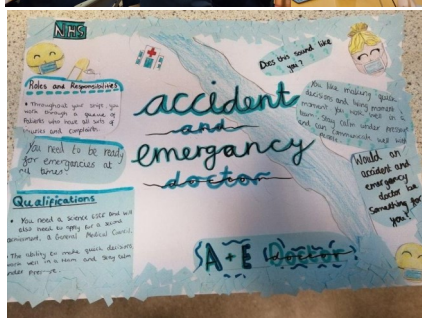 NHS
Roles and Responsibilities
• Throughout your shifts you
work through a queue of
Patients who have all sorts of
injuries and complaints.
You need to be ready
for emergencies at
all times
Qualifications
• You need a Science GCSE and will
also need to apply for a
a General Medical Council.
• The ability to make quick decisions
work well in a team and stay calm
under pressure.
accident
and
emergancy
doctor
A+E Doctor
Does this sound like
you?
You like making quick
decisions and being
work well in a
team. Stay calm under pressure
and can communicate well with
people
Would an
accident and
emergency
doctor be
something for
you?